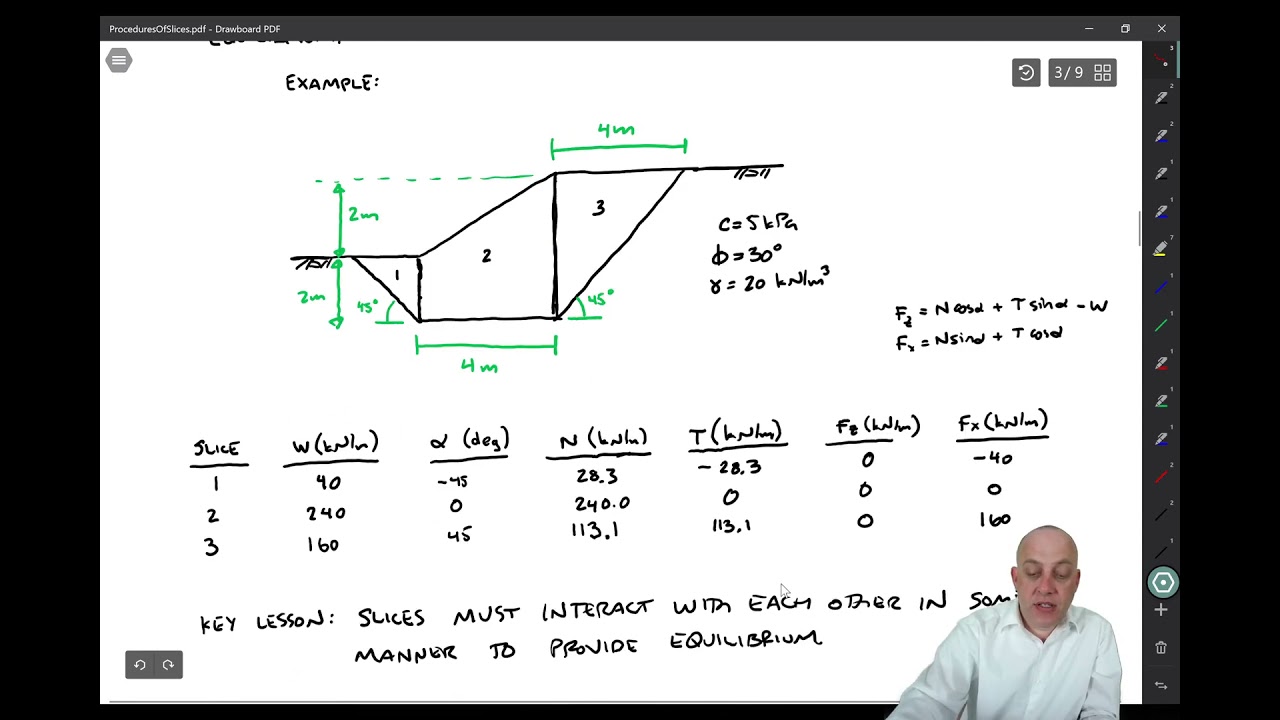 ProceduresOfSlices.pdf - Drawboard PDF
EXAMPLE:
3/9
4m
2m
3
2
1
2m
45°
45°
4m
c = 5 kPa
ϕ = 30°
γ = 20 kN/m³
Fz = N cosα + T sinα - W
Fx = N sinα + T cosα
SLICE W (kN/m) α (deg) N (kN/m) T (kN/m) Fz (kN/m) Fx (kN/m)
1 40 -45 28.3 -28.3 0 -40
2 240 0 240.0 0 0 0
3 160 45 113.1 113.1 0 160
KEY LESSON: SLICES MUST INTERACT WITH EACH OTHER IN
MANNER TO PROVIDE EQUILIBRIUM